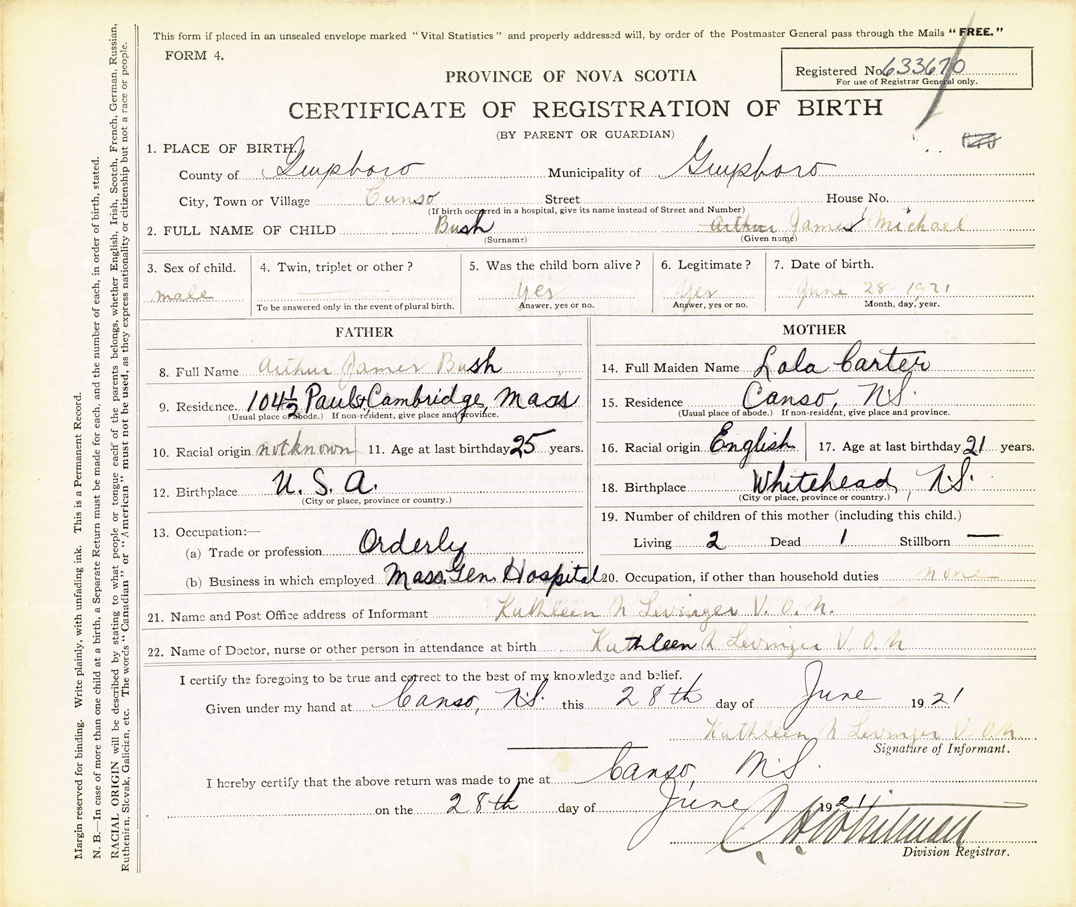 This form if placed in an unsealed envelope marked "Vital Statistics" and properly addressed will, by order of the Postmaster General pass through the Mails "FREE."
FORM 4.
Registered No. 633670
For use of Registrar General only.
PROVINCE OF NOVA SCOTIA
CERTIFICATE OF REGISTRATION OF BIRTH
(BY PARENT OR GUARDIAN)
1. PLACE OF BIRTH.
County of Guysboro Municipality of Guysboro
City, Town or Village Canso Street House No.
(If birth occurred in a hospital, give its name instead of Street and Number)
2. FULL NAME OF CHILD Bush Arthur James Michael
(Surname) (Given name)
3. Sex of child. 4. Twin, triplet or other? 5. Was the child born alive? 6. Legitimate? 7. Date of birth.
male Yes Yes June 28 - 1921
To be answered only in the event of plural birth. Answer, yes or no. Answer, yes or no. Month, day, year.
FATHER
8. Full Name Arthur James Bush
9. Residence. 104½ Paul Cambridge, Mass
(Usual place of abode.) If non-resident, give place and province.
10. Racial origin not known 11. Age at last birthday 25 years.
12. Birthplace U. S. A.
(City or place, province or country.)
13. Occupation:—
(a) Trade or profession Orderly
(b) Business in which employed Mass. Gen. Hospital
MOTHER
14. Full Maiden Name Lola Carter
15. Residence Canso, N.S.
(Usual place of abode.) If non-resident, give place and province.
16. Racial origin English 17. Age at last birthday 21 years.
18. Birthplace Whitehead, N.S.
(City or place, province or country.)
19. Number of children of this mother (including this child.)
Living 2 Dead 1 Stillborn —
20. Occupation, if other than household duties none
21. Name and Post Office address of Informant Kathleen N Levinger V. O. N.
22. Name of Doctor, nurse or other person in attendance at birth Kathleen N Levinger V O N
I certify the foregoing to be true and correct to the best of my knowledge and belief.
Given under my hand at Canso, N.S. this 28th day of June 1921
Kathleen N Levinger V. O. N.
Signature of Informant.
I hereby certify that the above return was made to me at Canso, N.S.
on the 28th day of June 1921
Whitman
Division Registrar.
Margin reserved for binding. Write plainly, with unfading ink. This is a Permanent Record.
N. B.—In case of more than one child at a birth, a Separate Return must be made for each, and the number of each, in order of birth, stated.
RACIAL ORIGIN will be described by stating to what people or tongue each of the parents belongs, whether English, Irish, Scotch, French, German, Russian,
Ruthenian, Slovak, Galician, etc. The words "Canadian" or "American" must not be used, as they express nationality or citizenship but not a race or people.